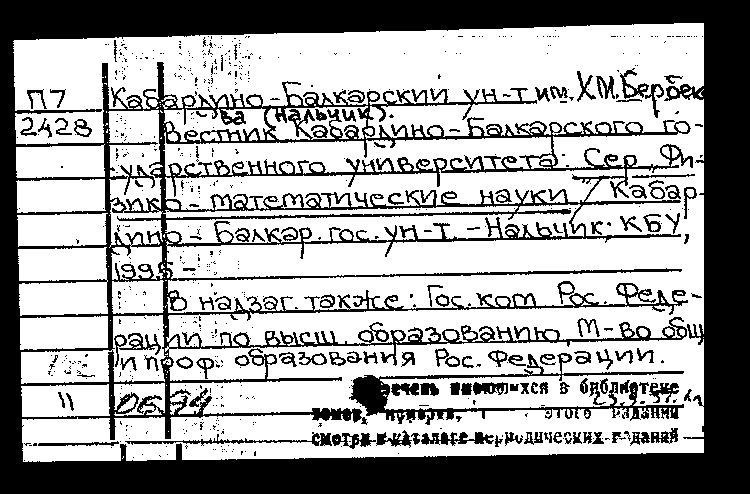 П7 Кабардино-Балкарский ун-т им. Х.М. Бербеко-
2428 ва (Нальчик).
Вестник Кабардино-Балкарского го-
сударственного университета: Сер. Фи-
зико-математические науки / Кабар-
дино-Балкар. гос. ун-т. - Нальчик: КБУ,
1995 -
В надзаг. также: Гос. ком. Рос. Феде-
рации по высш. образованию, М-во общ.
и проф. образования Рос. Федерации.
Перечень имеющихся в библиотеке
11 06.94
этого издания
смотри в каталоге периодических изданий